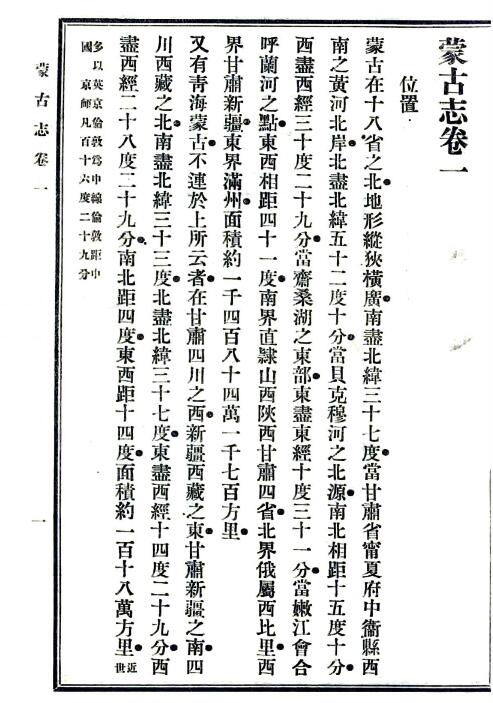 蒙古志卷一
位置
蒙古在十八省之北地形縱狹橫廣南盡北緯三十七度當甘肅省甯夏府中衞縣西
南之黃河北岸北盡北緯五十二度十分當貝克穆河之北源南北相距十五度十分
西盡西經三十度二十九分當齋桑湖之東部東盡東經十度三十一分當嫩江會合
呼蘭河之點東西相距四十一度南界直隷山西陝西甘肅四省北界俄屬西比里西
界甘肅新疆東界滿州面積約一千四百八十四萬一千七百方里
又有靑海蒙古不連於上所云者在甘肅四川之西新疆西藏之東甘肅新疆之南四
川西藏之北南盡北緯三十三度北盡北緯三十七度東盡西經十四度二十九分西
盡西經二十八度二十九分南北距四度東西距十四度面積約一百十八萬方里近世
多以英京倫敦爲中線倫敦距中
國京師凡百十六度二十九分
蒙古志卷一
一